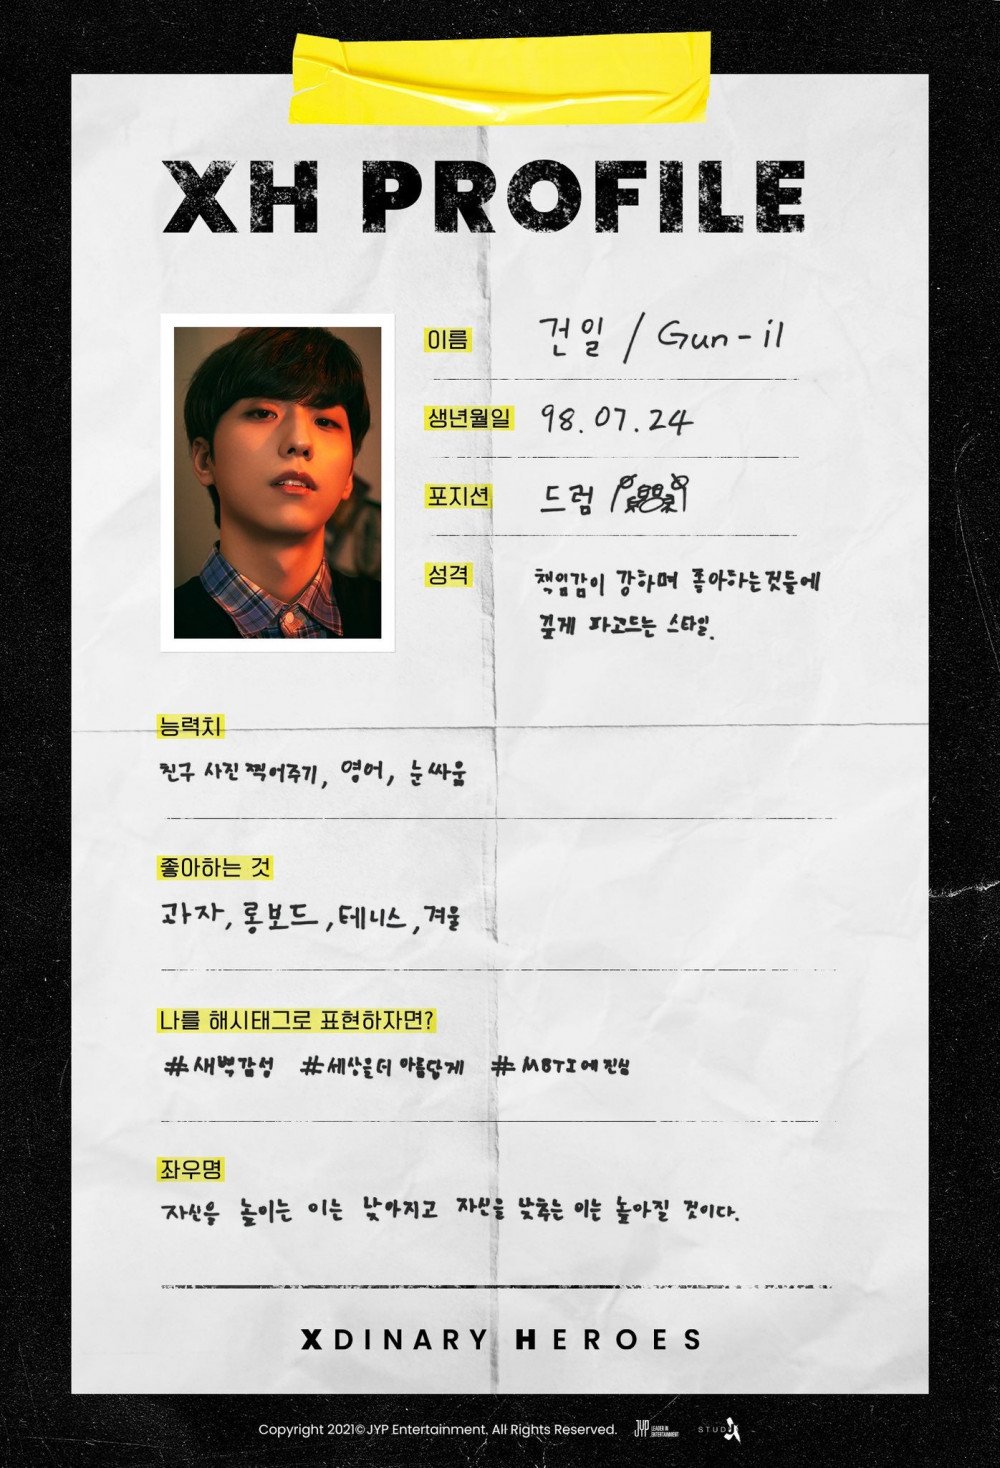 XH PROFILE
이름
건일 / Gun-il
생년월일
98.07.24
포지션
드럼
성격
책임감이 강하며 좋아하는것들에
깊게 파고드는 스타일.
능력치
친구 사진찍어주기, 영어, 눈싸움
좋아하는 것
과자, 롱보드, 테니스, 겨울
나를 해시태그로 표현하자면?
#새벽감성 #세상을더 아름답게 #MBTI에 진심
좌우명
자신을 높이는 이는 낮아지고 자신을 낮추는 이는 높아질 것이다.
XDINARY HEROES
Copyright 2021©JYP Entertainment. All Rights Reserved.
JYP LEADER IN ENTERTAINMENT